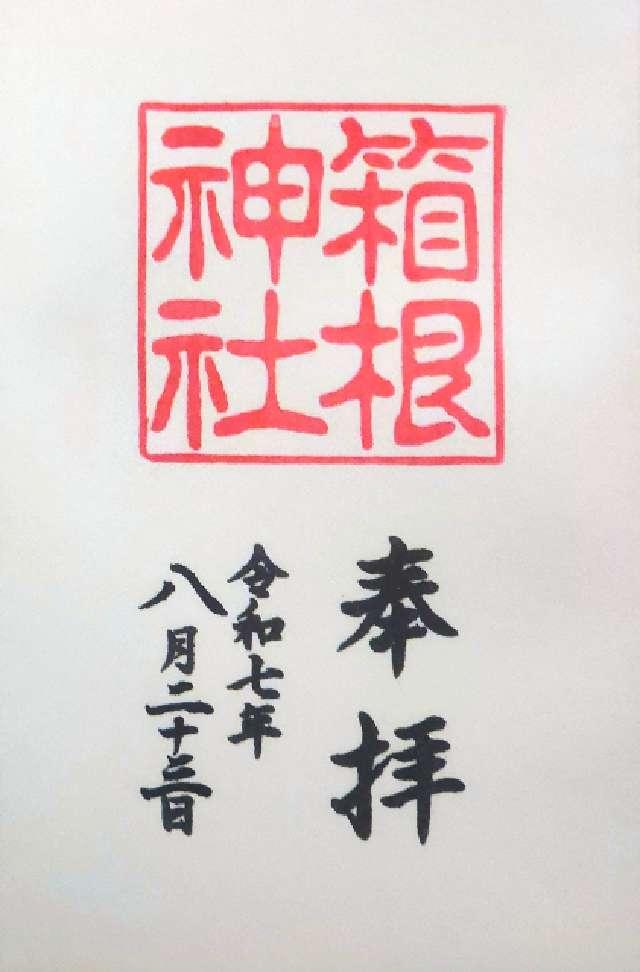 箱根
神社
奉拝
令和七年
八月二十三日